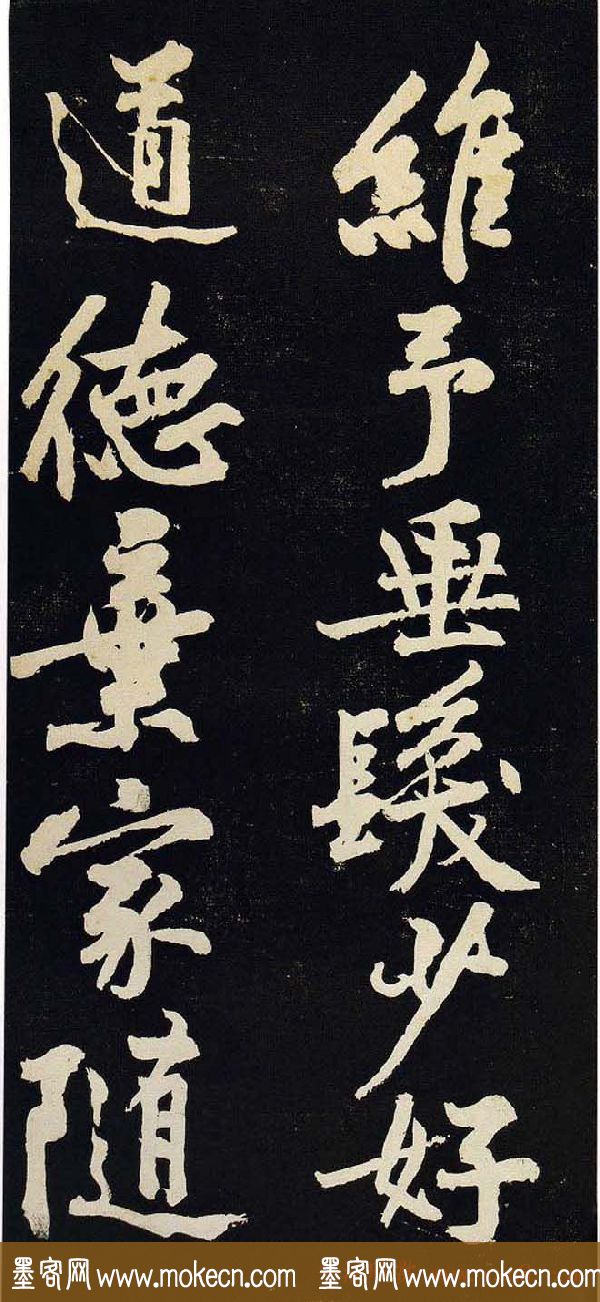 維予垂髮少好
道德棄家随
墨客网 www.mokecn.com 墨客网 www.mokecn.com